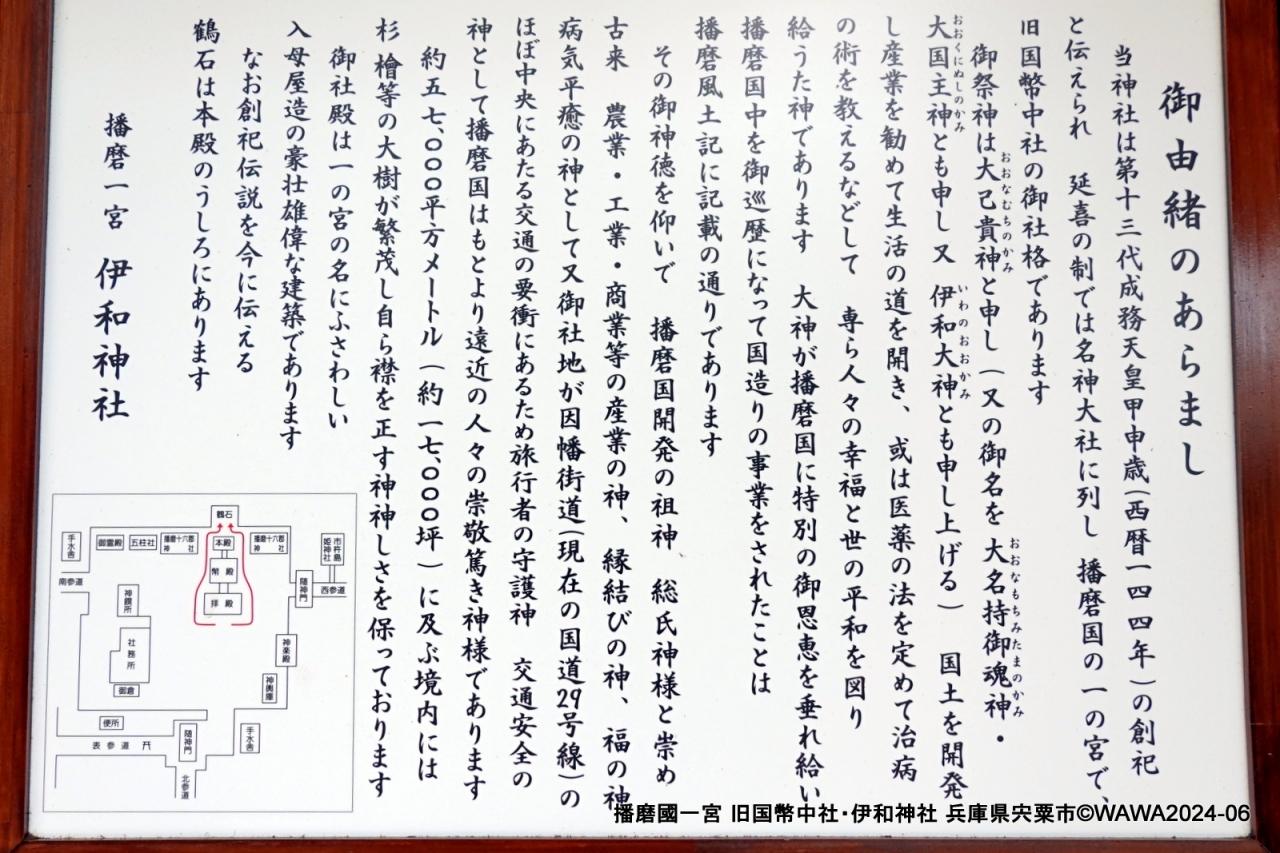 御由緒のあらまし
当神社は第十三代成務天皇甲申歳(西暦一四四年)の創祀
と伝えられ 延喜の制では名神大社に列し 播磨国の一の宮で、
旧国幣中社の御社格であります
御祭神は大己貴神と申し(又の御名を 大名持御魂神・
おおなむちのかみ
おおなもちみたまのかみ
大国主神とも申し又 伊和大神とも申し上げる) 国土を開発
おおくにぬしのかみ
いわのおおかみ
し産業を勧めて生活の道を開き、或は医薬の法を定めて治病
の術を教えるなどして 専ら人々の幸福と世の平和を図り
給うた神であります 大神が播磨国に特別の御恩恵を垂れ給い
播磨国中を御巡歴になって国造りの事業をされたことは
播磨風土記に記載の通りであります
その御神徳を仰いで 播磨国開発の祖神 総氏神様と崇め
古来 農業・工業・商業等の産業の神、縁結びの神、福の神
病気平癒の神として又御社地が因幡街道(現在の国道29号線)の
ほぼ中央にあたる交通の要衝にあるため旅行者の守護神 交通安全の
神として播磨国はもとより遠近の人々の崇敬篤き神様であります
約五七、〇〇〇平方メートル(約一七、〇〇〇坪)に及ぶ境内には
杉 檜等の大樹が繁茂し自ら襟を正す神神しさを保っております
御社殿は一の宮の名にふさわしい
入母屋造の豪壮雄偉な建築であります
なお創祀伝説を今に伝える
鶴石は本殿のうしろにあります
播磨一宮 伊和神社
鶴石
手水舎
御霊殿
五柱社
播磨十六郡神社
本殿
播磨十六郡神社
市杵島姫神社
南参道
幣殿
随神門
西参道
神饌所
拝殿
社務所
神楽殿
御倉
神輿庫
便所
表参道
随神門
手水舎
北参道
播磨國一宮 旧国幣中社・伊和神社 兵庫県宍粟市©WAWA2024-06